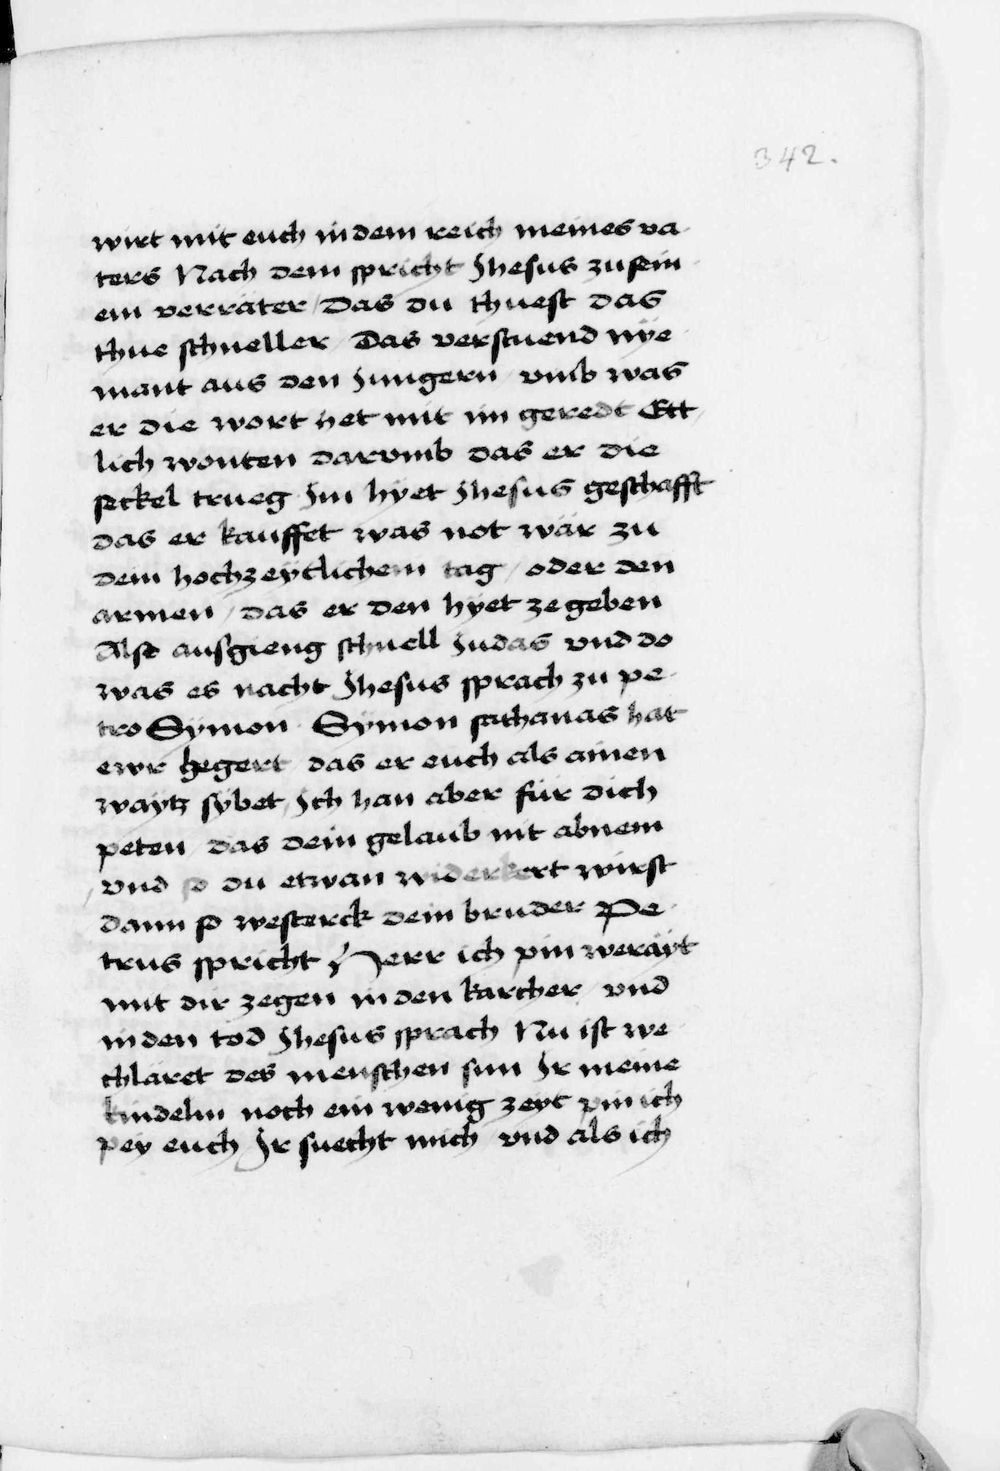 342.
wirt mit euch in dem reich meines va-
ters Nach dem spricht Jhesus zu sein
em verräter / Das du thuest das
thue schneller / Das verstuend nÿe
mant aus den Jungern / vmb was
er die wort het mit im geredt Ett-
lich wonten darvmb das er die
seckel trueg Im hÿet Jhesus geschafft
das er kauffet was not wär zu
dem hochzeÿtlichem tag / oder den
armen / das er den hÿet ze geben
Alse ausgieng schnell Judas vnd do
was es nacht Jhesus sprach zu pe-
tro Sÿmon · Sÿmon sathanas hat
ewr begert / das er euch als ainen
waÿtz sÿbet / Ich han aber für dich
peten / das dein gelaub nit abnem
/ vnd so du etwan widerkert wirst
dann so westerck dein bruder Pe-
trus spricht Herr ich pin weräÿt
mit dir ze gen in den karcher / vnd
in den tod Jhesus sprach Nu ist we
chläret des menschen sun Ir meine
kindelin noch ein wenig zeÿt pin ich
peÿ euch / Ir suecht mich vnd als ich